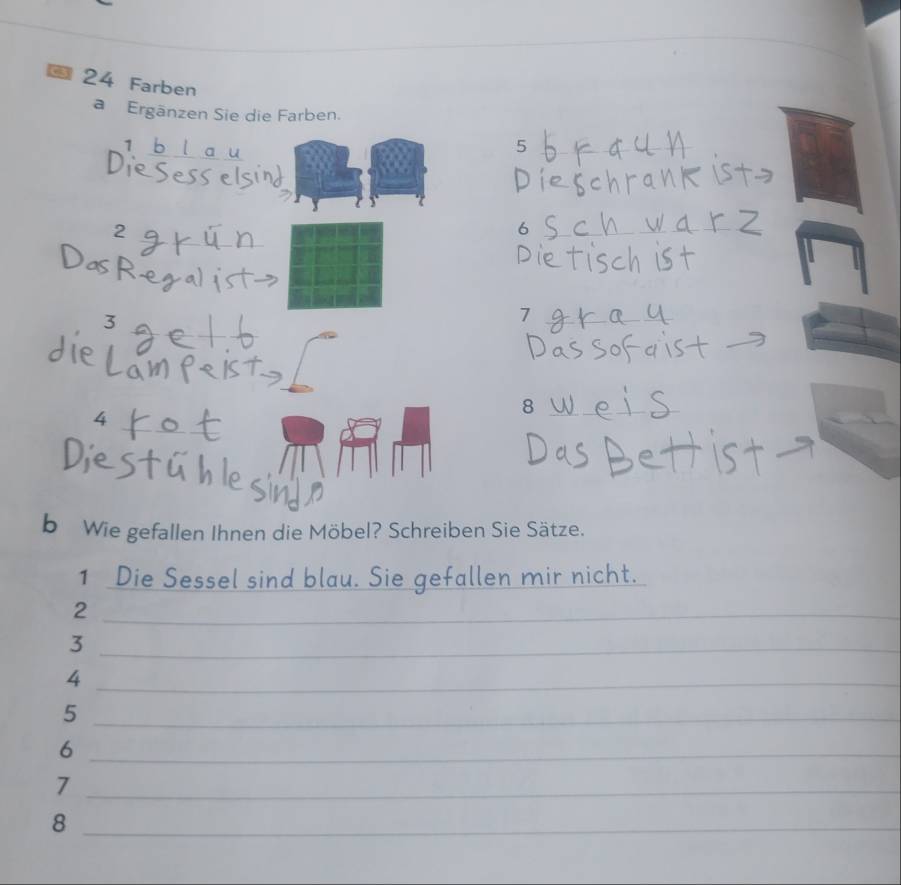 C3 24 Farben
a Ergänzen Sie die Farben.
1 blau
Die Sessel sind →
2 grün
Das Regal ist →
3 gelb
die Lampe ist →
4 rot
Die stühle sind →
5 braun
Die schrank ist →
6 schwarz
Die tisch ist
7 grau
Das sofa ist →
8 weis
Das Bett ist →
b Wie gefallen Ihnen die Möbel? Schreiben Sie Sätze.
1 Die Sessel sind blau. Sie gefallen mir nicht.
2
3
4
5
6
7
8